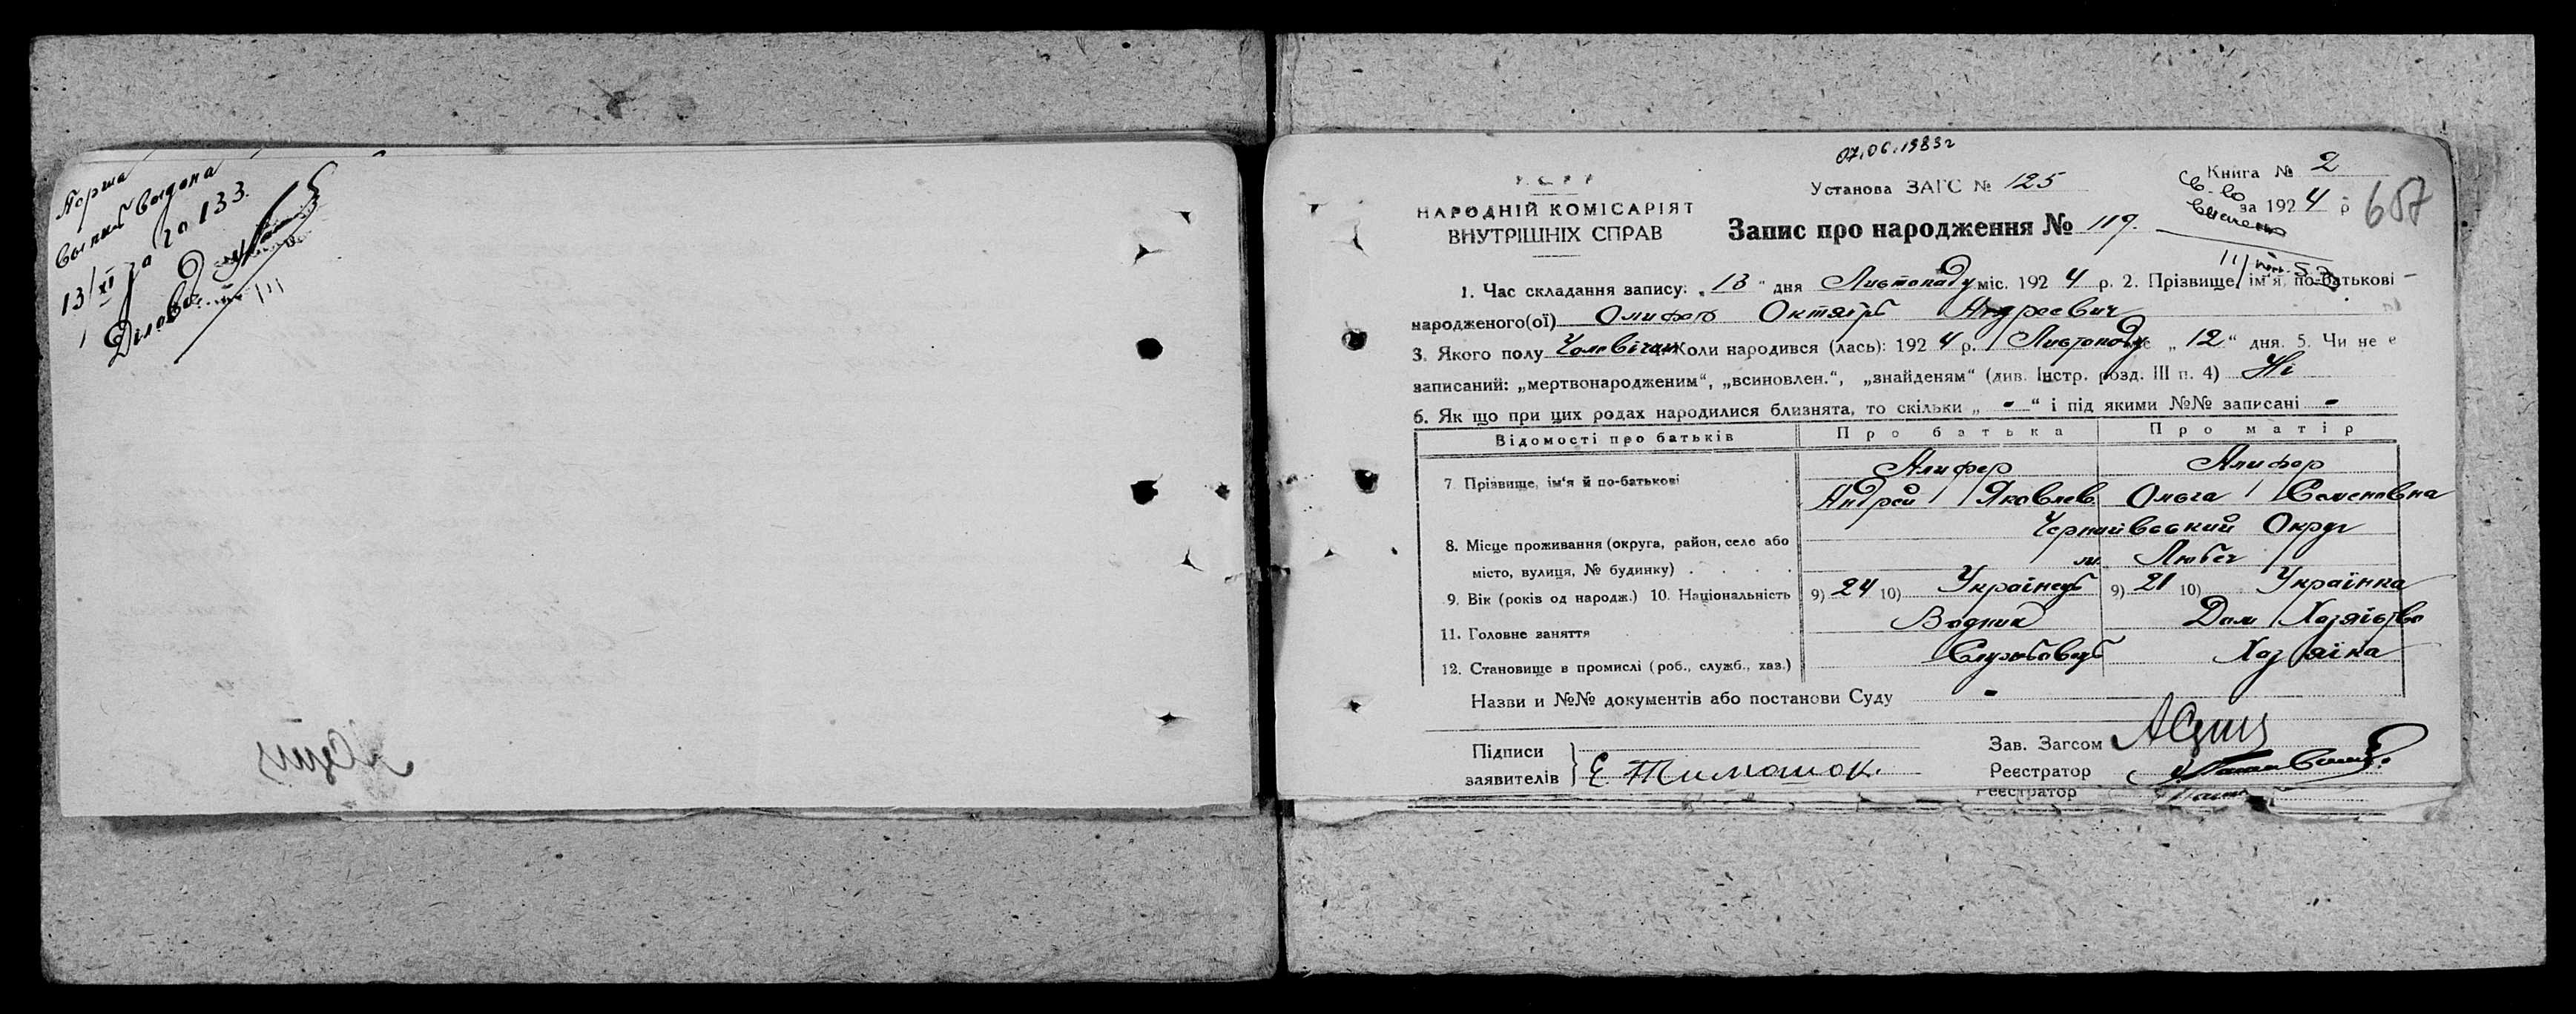 Перша
выпись выдана
13/XI за № 133.
Діловод
07.06.1983г
У.С.Р.Р
НАРОДНІЙ КОМІСАРІЯТ
ВНУТРІШНІХ СПРАВ
Установа ЗАГС № 125
Книга № 2
за 1924 р
657
Запис про народження № 119.
1. Час складання запису: „13“ дня Листопаду міс. 1924 р. 2. Прізвище, ім'я, по-батькові
народженого(ої) Олифер Октябрь Андреевич
3. Якого полу Чоловічий Коли народився (лась): 1924 р. Листопаду міс „12“ дня. 5. Чи не є
записаний: „мертвонародженим“, „всиновлен.“, „знайденям“ (див. Інстр. розд. III п. 4) Ні
6. Як що при цих родах народилися близнята, то скільки „ - “ і під якими №№ записані -
Відомості про батьків Про батька Про матір
7. Прізвище, ім'я й по-батькові
Алифер Алифер
Андрей Яковлев Ольга Семеновна
8. Місце проживання (округа, район, село або
місто, вулиця, № будинку) . . . .
Чернигівський Округ
м. Любеч
9. Вік (років од народж.) 10. Національність 9) 24 10) Українець 9) 21 10) Українка
11. Головне заняття Водник Дом Хазяіство
12. Становище в промислі (роб., служб., хаз.) Службовець Хазяіка
Назви и №№ документів або постанови Суду -
Підписи
заявителів Е Тимошок.
Зав. Загсом
Реєстратор
Реєстратор